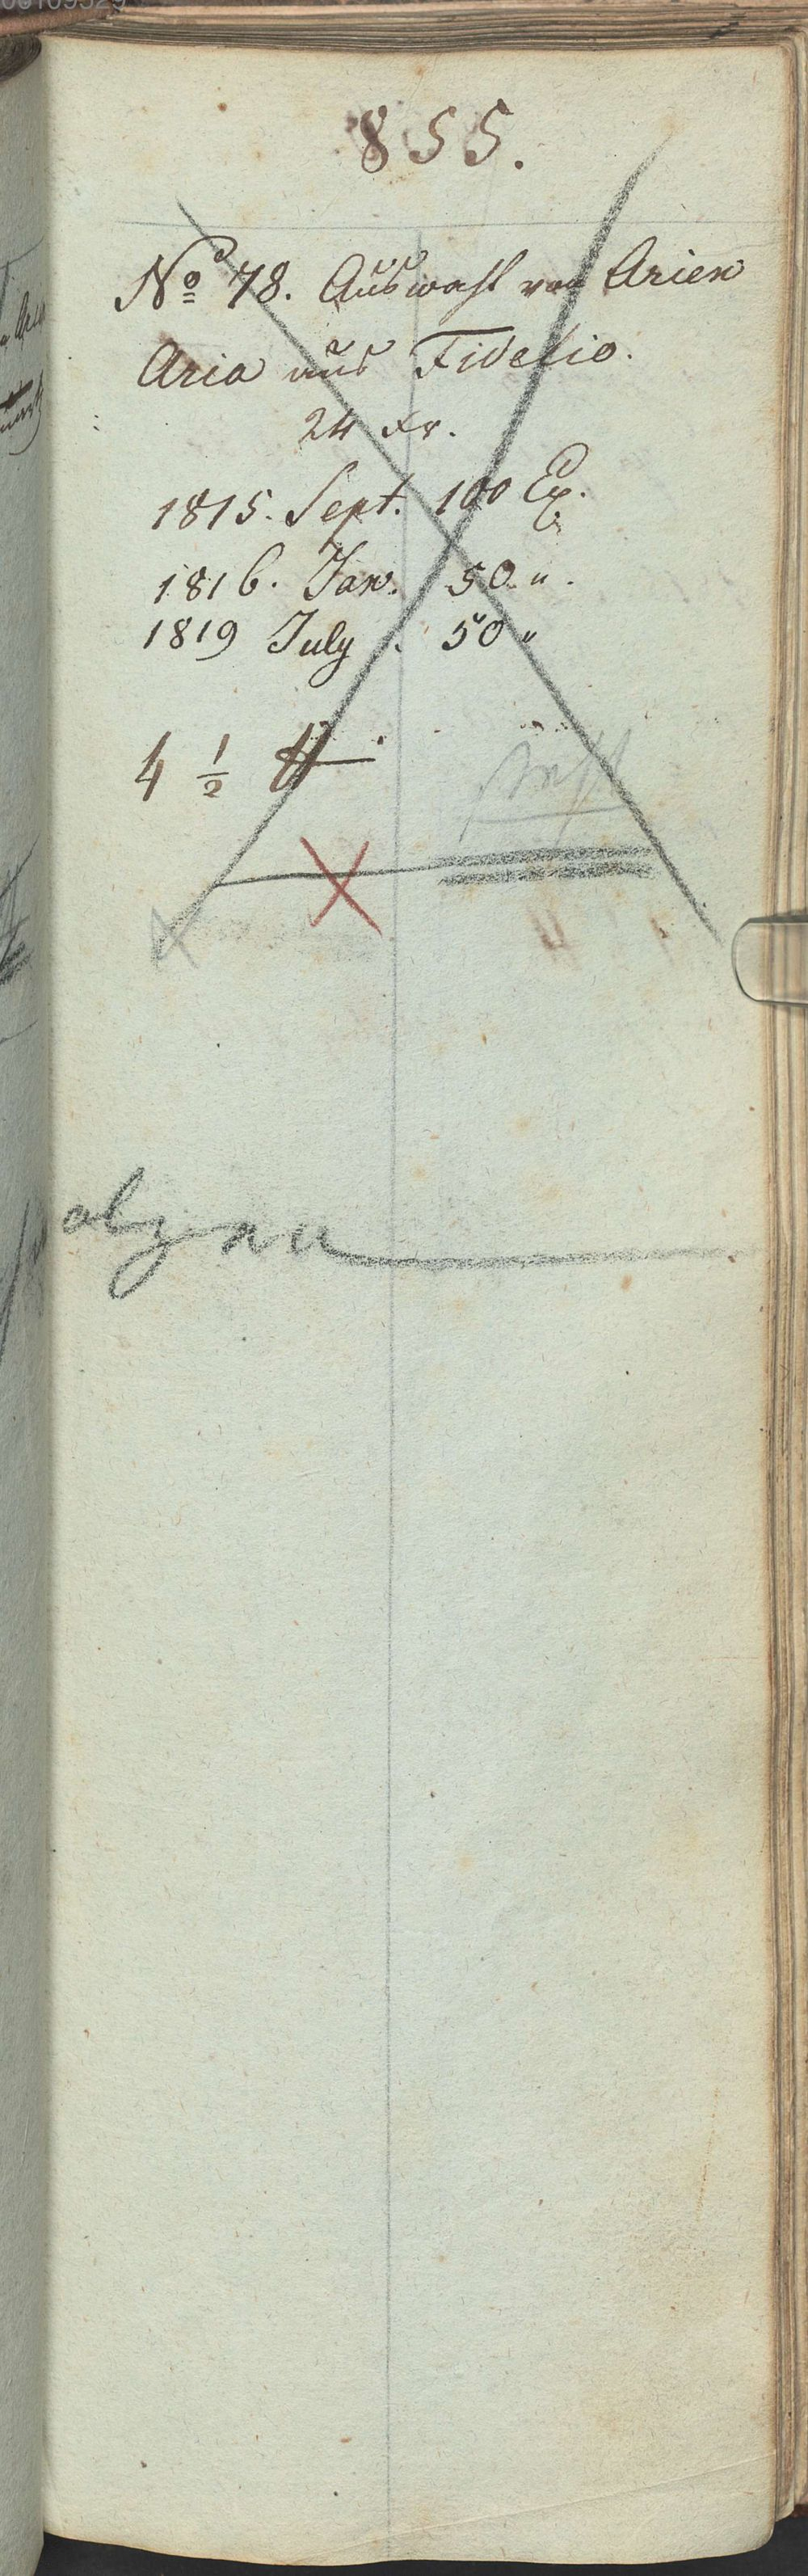 855.
No 78. Auswahl von Arien
Aria aus Fidelio.
24 xr.
1815. Sept. 100 Ex.
1816. Jan. 50 "
1819 July. 50 "
4 1/2 ℔